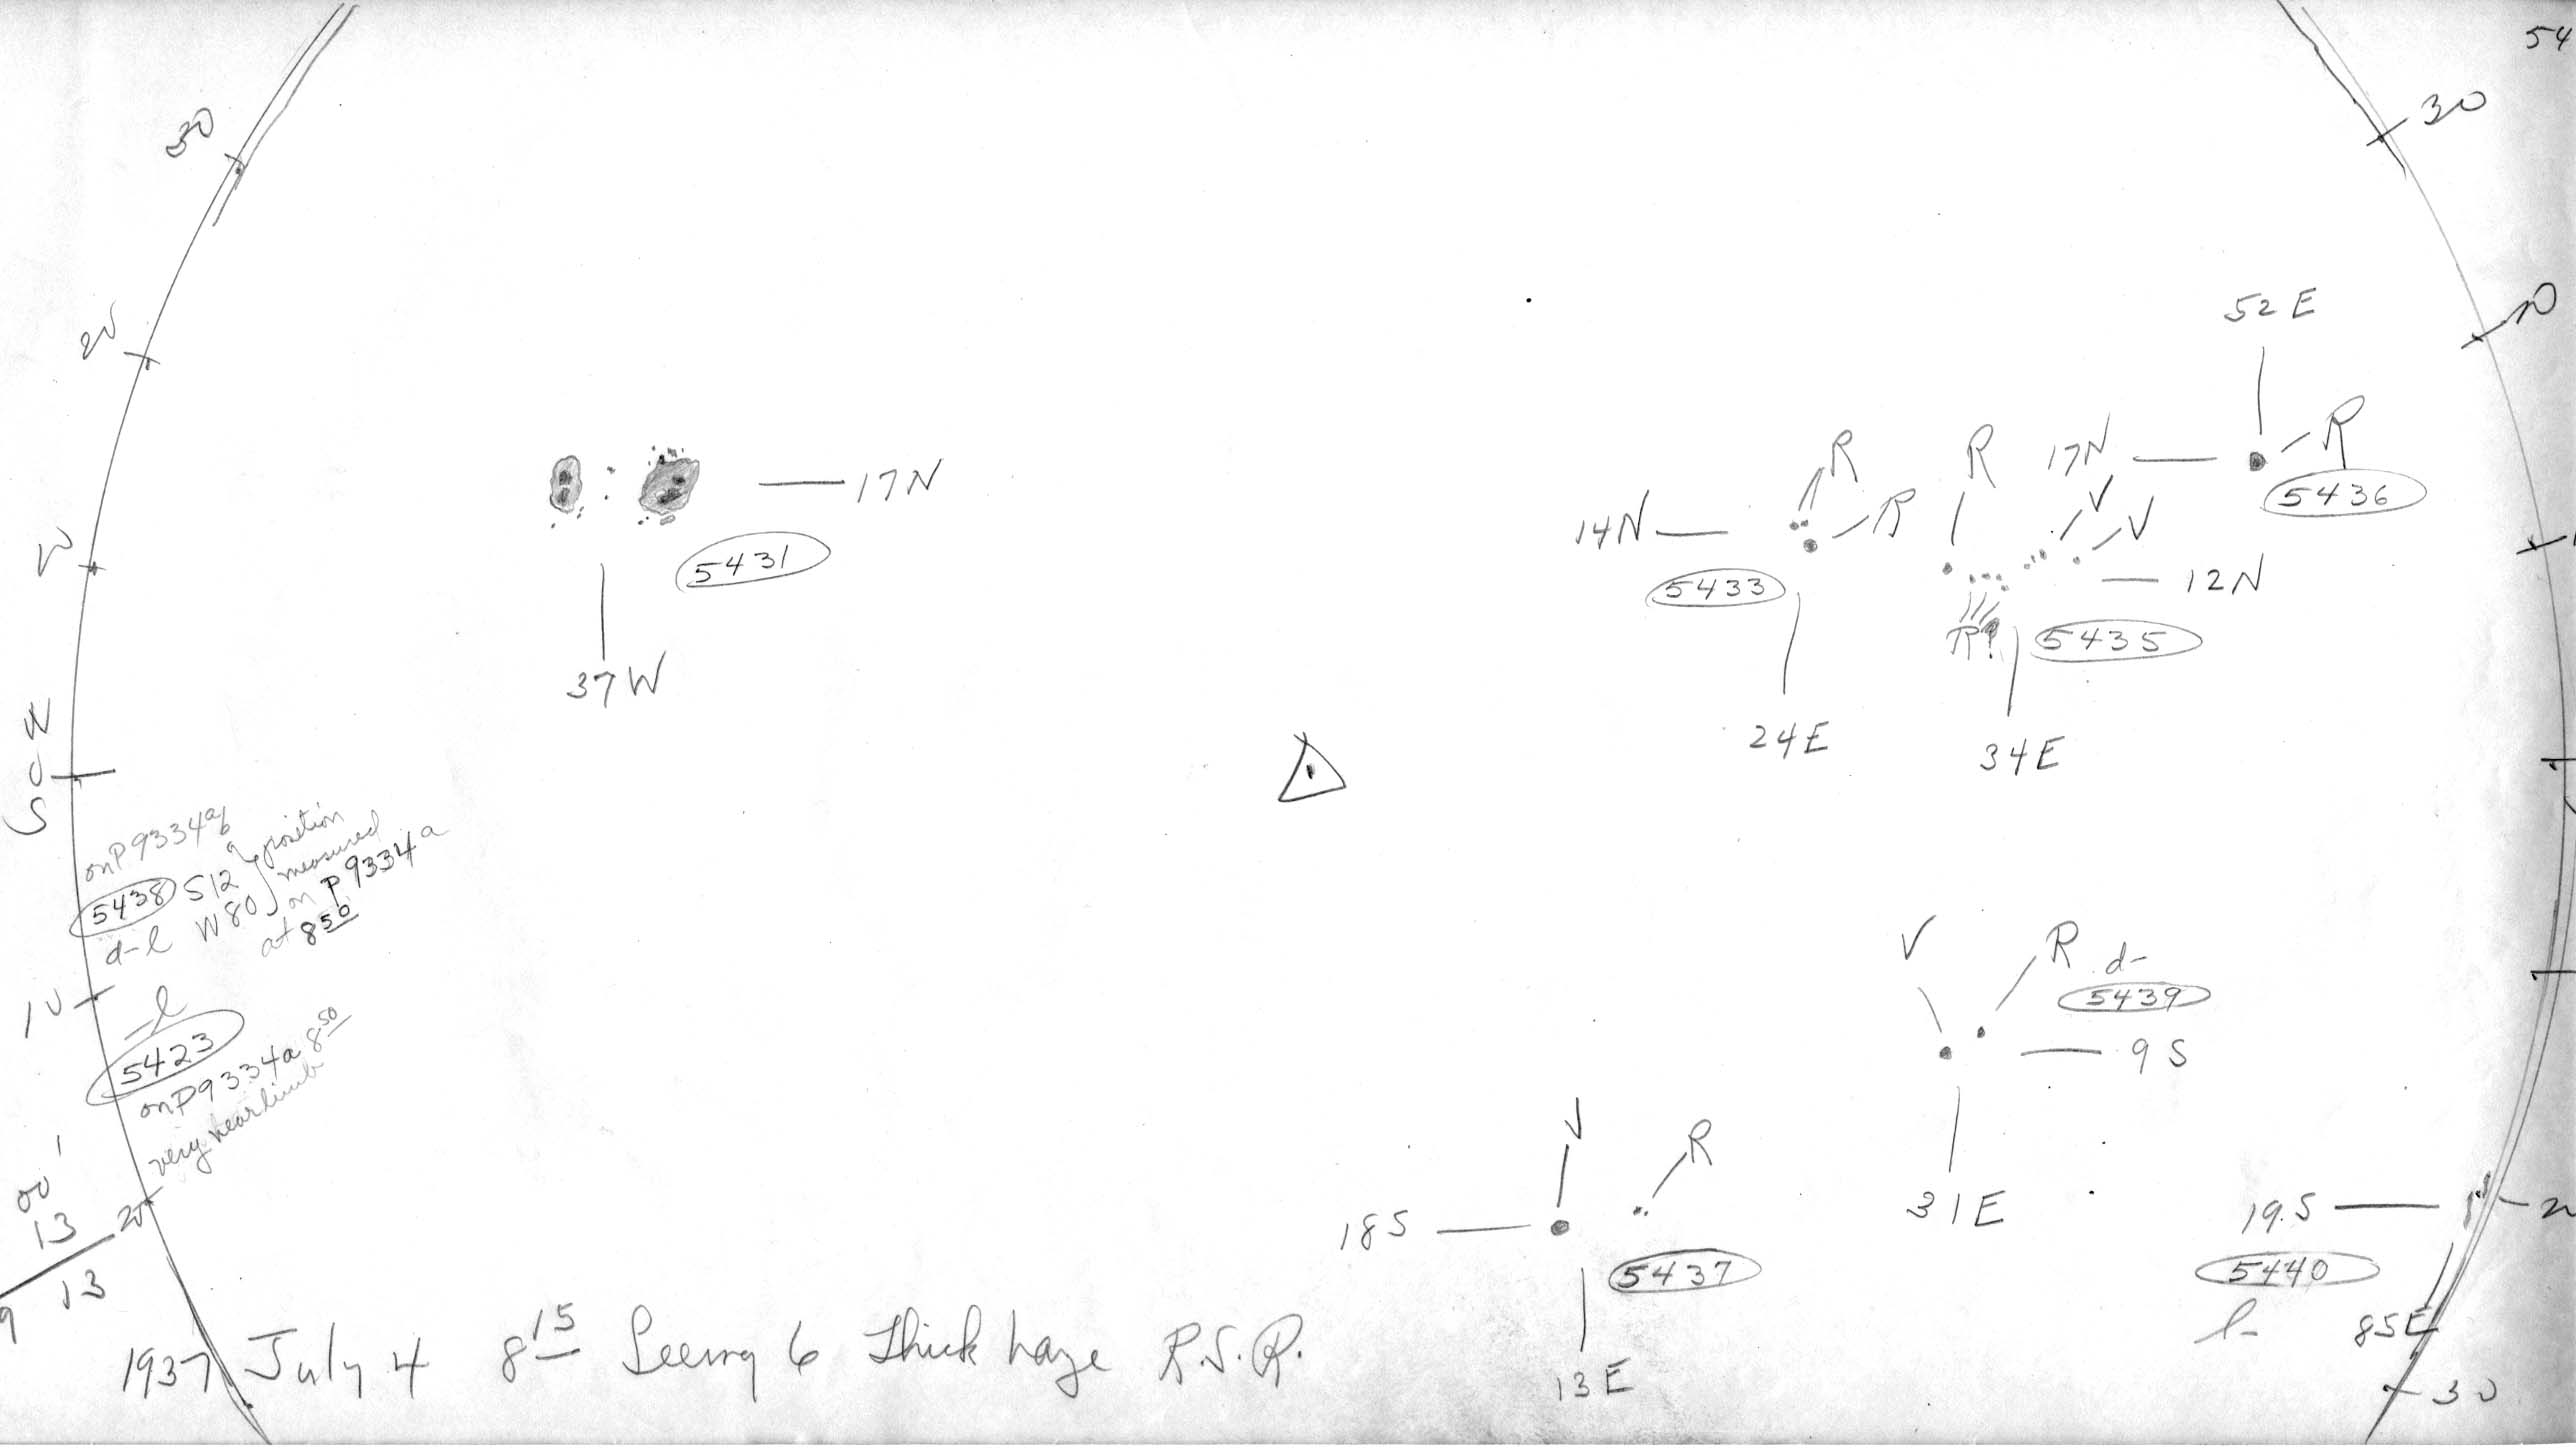 54
30
30
20
52 E
R
17N
5436
R
R
R
V
V
14N
5433
12N
R?
5435
24E
34E
17N
5431
37W
N
0
S
on P9334ab
5438 S12 } position
d-l W80 } measured
on P 9334a
at 8 50
10
-l
5423
on P9334a 8 50
very near limb
V
R
d-
5439
9 S
31E
V
R
18S
5437
13E
19.S
5440
l-
85E
30
00 1
13
20
9 13
1937 July 4 8 15 Seeing 6 Thick haze R.S.R.